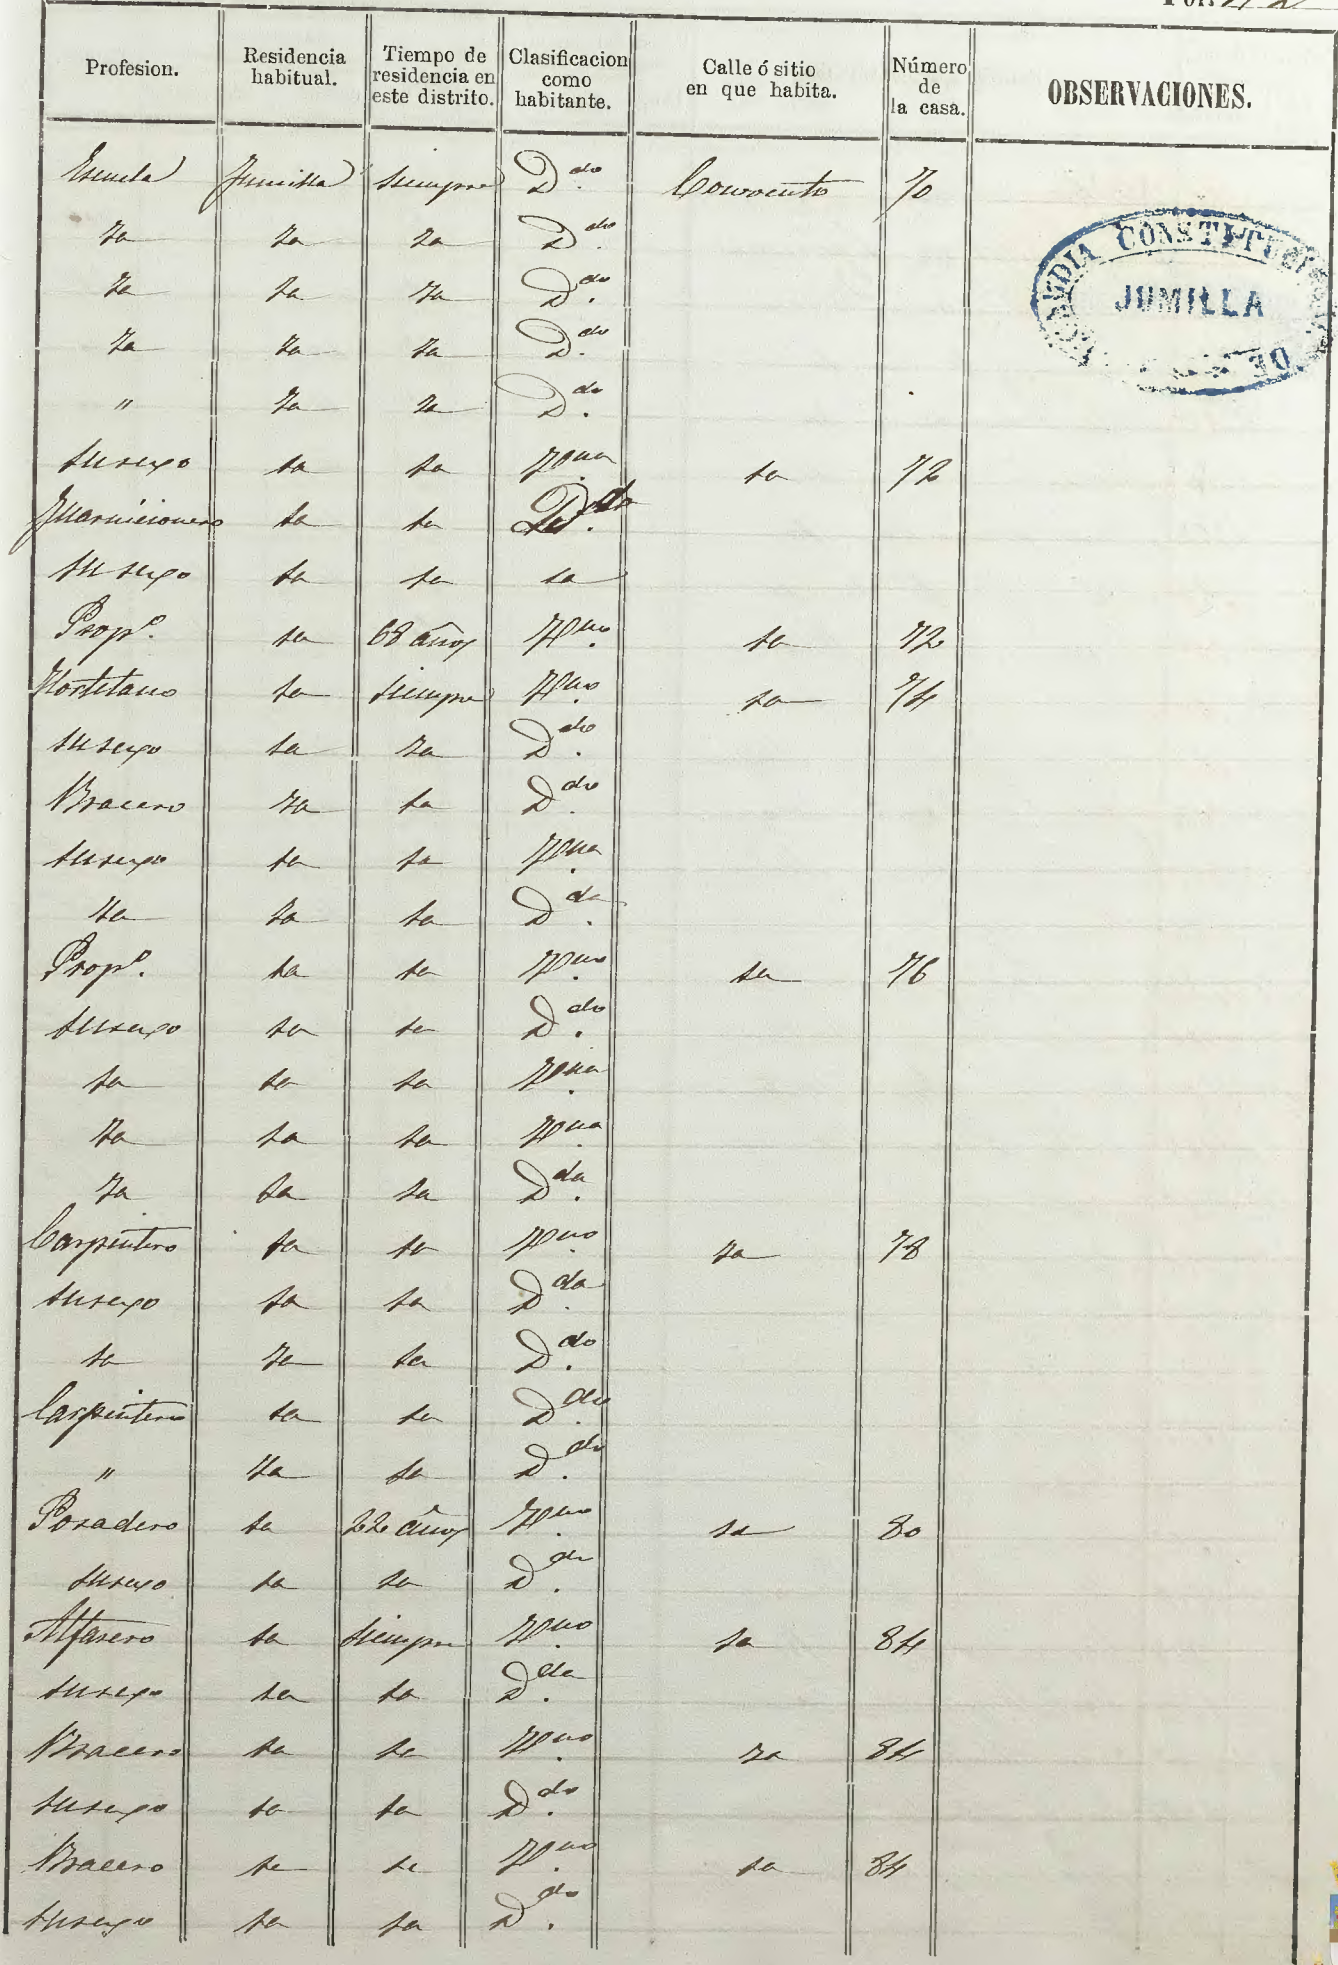 Profesion. Residencia habitual. Tiempo de residencia en este distrito. Clasificacion como habitante. Calle ó sitio en que habita. Número de la casa. OBSERVACIONES.
Escuela Jumilla siempre Ddo. Convento 70
ia ia ia Ddo.
ia ia ia Ddo.
ia ia ia Ddo.
" ia ia Ddo.
su sexo ia ia Vna. ia 72
Guarnicionero ia ia Ddo.
su sexo ia ia ia
Propo. ia 68 años Vno. ia 72
Hortelano ia siempre Vno. ia 74
su sexo ia ia Ddo.
Bracero ia ia Ddo.
su sexo ia ia Vna.
ia ia ia Dda.
Propo. ia ia Vno. ia 76
su sexo ia ia Ddo.
ia ia ia Vna.
ia ia ia Vna.
ia ia ia Dda.
Carpintero ia ia Vno. ia 78
su sexo ia ia Dda.
ia ia ia Ddo.
Carpintero ia ia Ddo.
" ia ia Ddo.
Posadero ia 22 años Vno. ia 80
su sexo ia ia Dda.
Alfarero ia siempre Vno. ia 84
su sexo ia ia Dda.
Bracero ia ia Vno. ia 84
su sexo ia ia Ddo.
Bracero ia ia Vno. ia 84
su sexo ia ia Ddo.
ALCALDIA CONSTITUCIONAL DE
JUMILLA